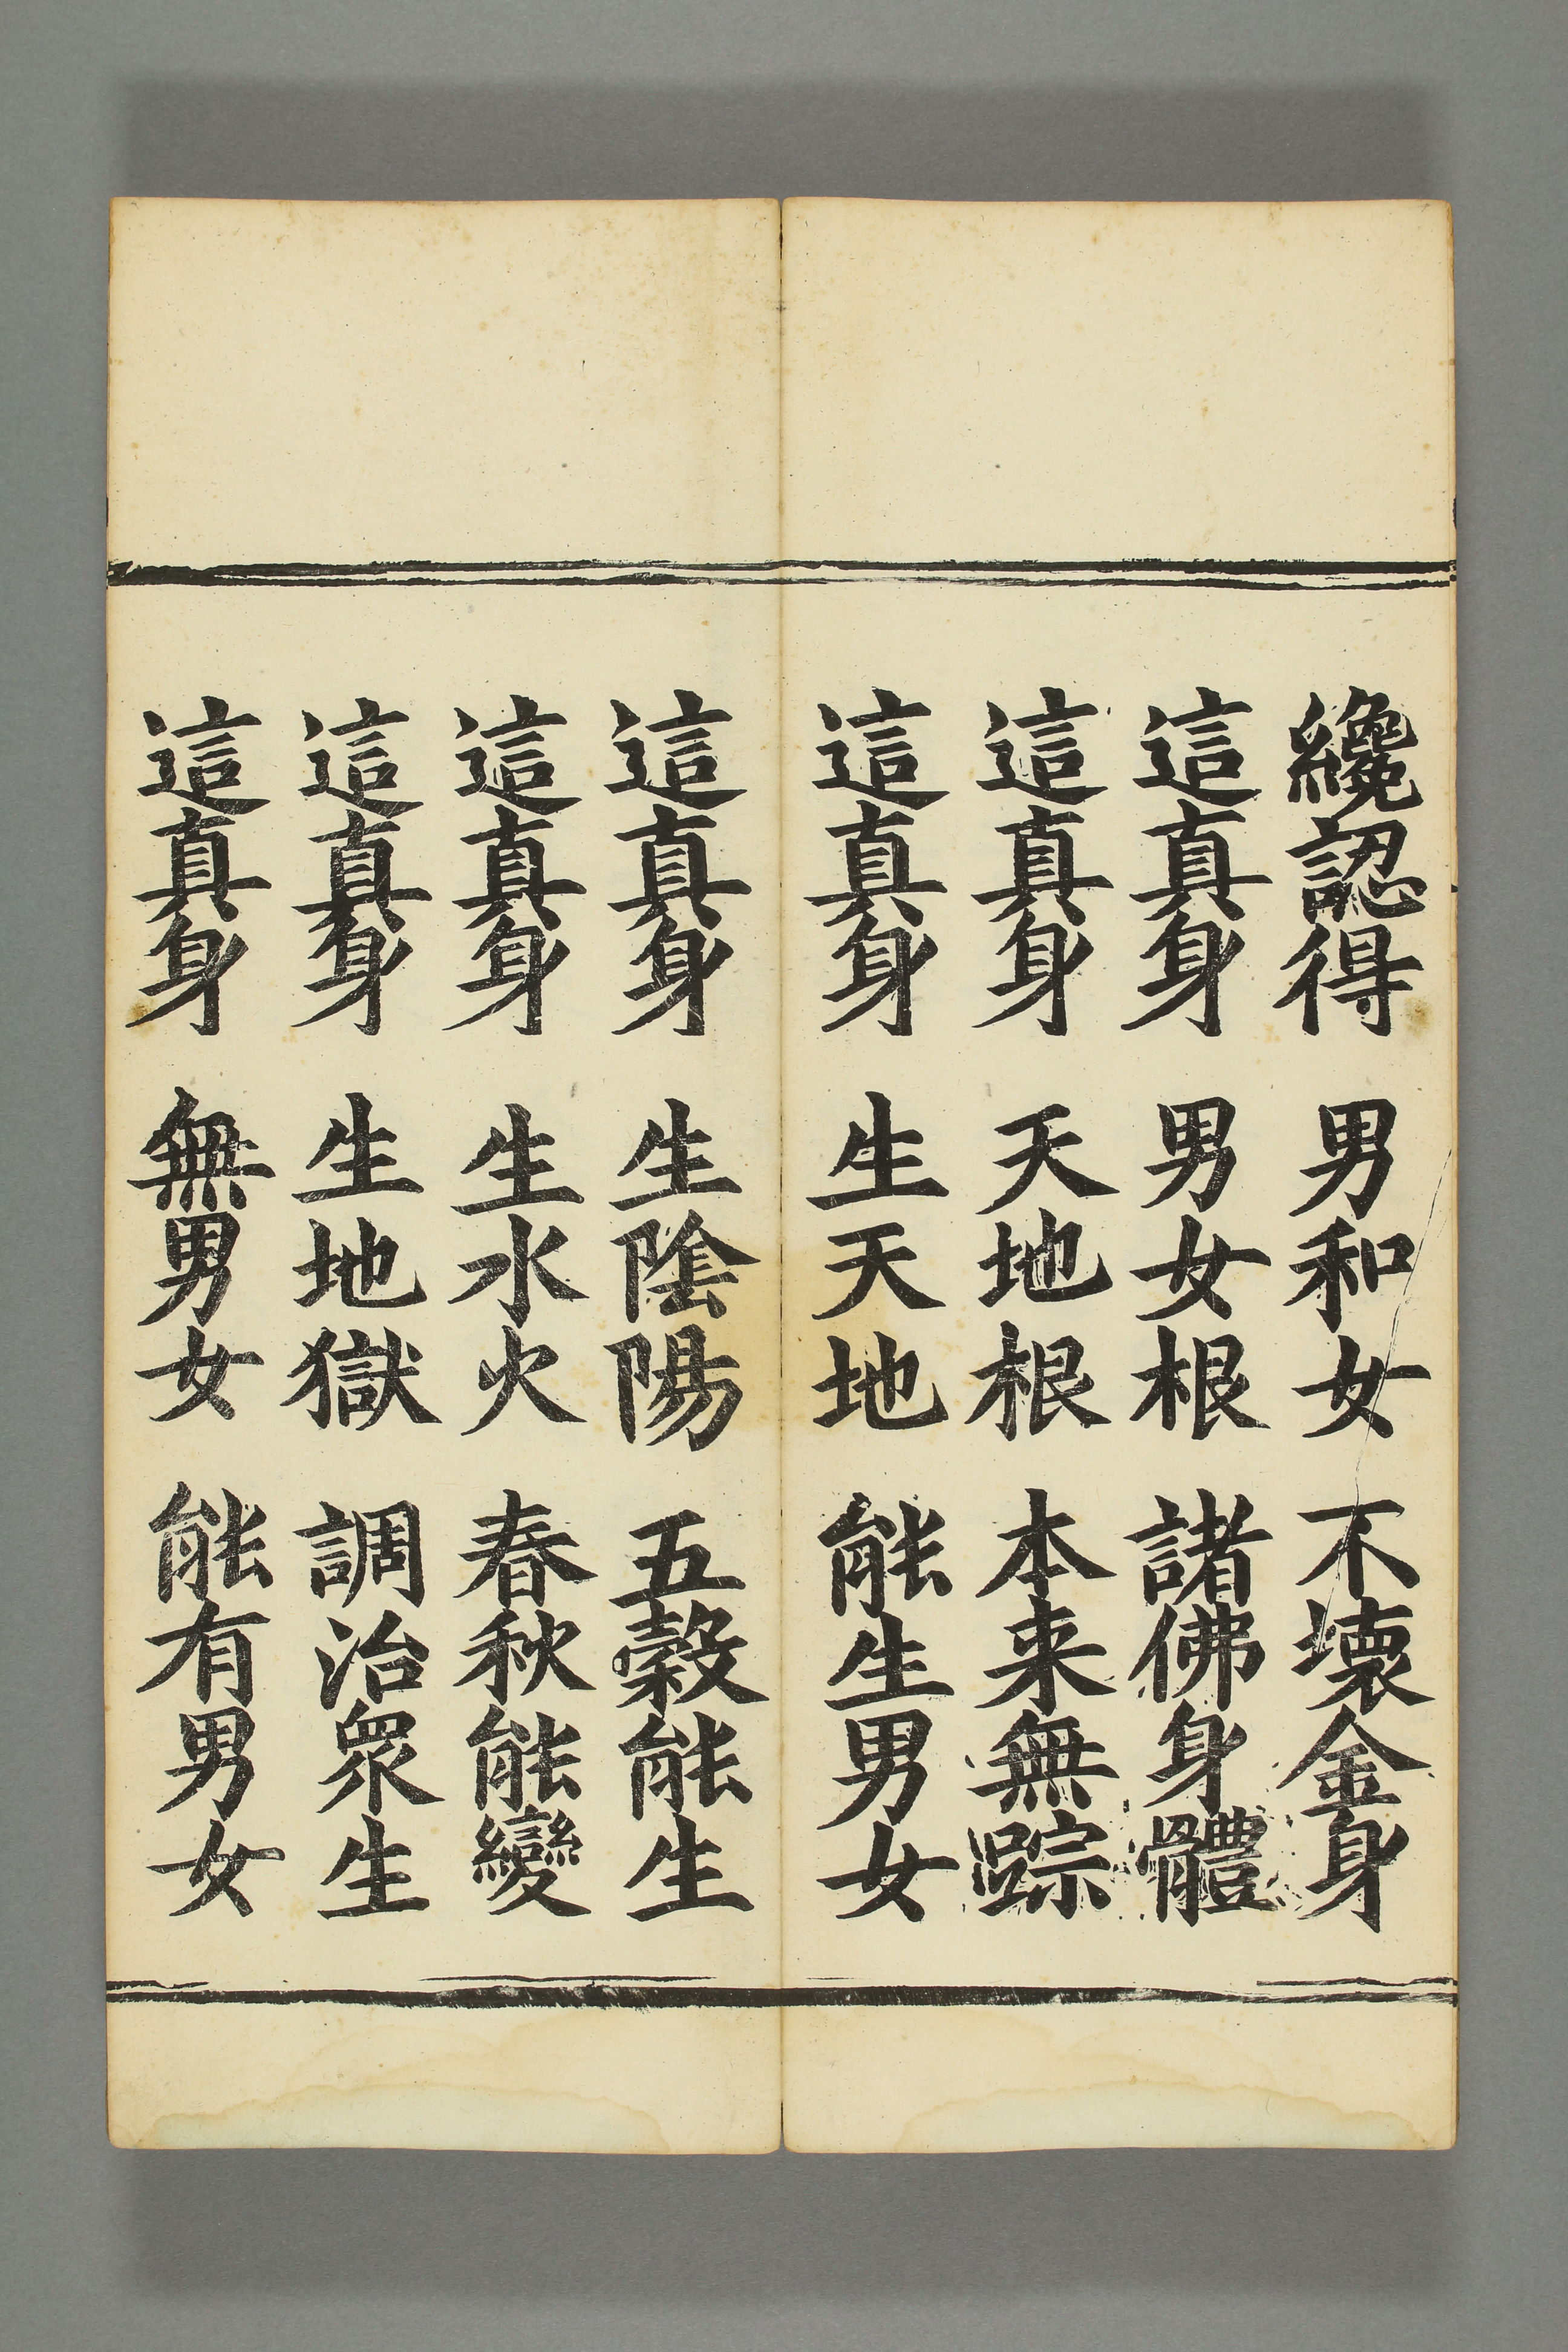 纔認得 男和女 不壞金身
這真身 男女根 諸佛身體
這真身 天地根 本来無踪
這真身 生天地 能生男女
這真身 生陰陽 五穀能生
這真身 生水火 春秋能變
這真身 生地獄 調治眾生
這真身 無男女 能有男女